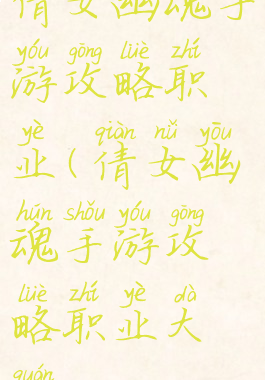 倩女幽魂手
yóu gōng lüè zhí
游攻略职
yè qiàn nǚ yōu
业(倩女幽
hún shǒu yóu gōng
魂手游攻
lüè zhí yè dà
略职业大
quán